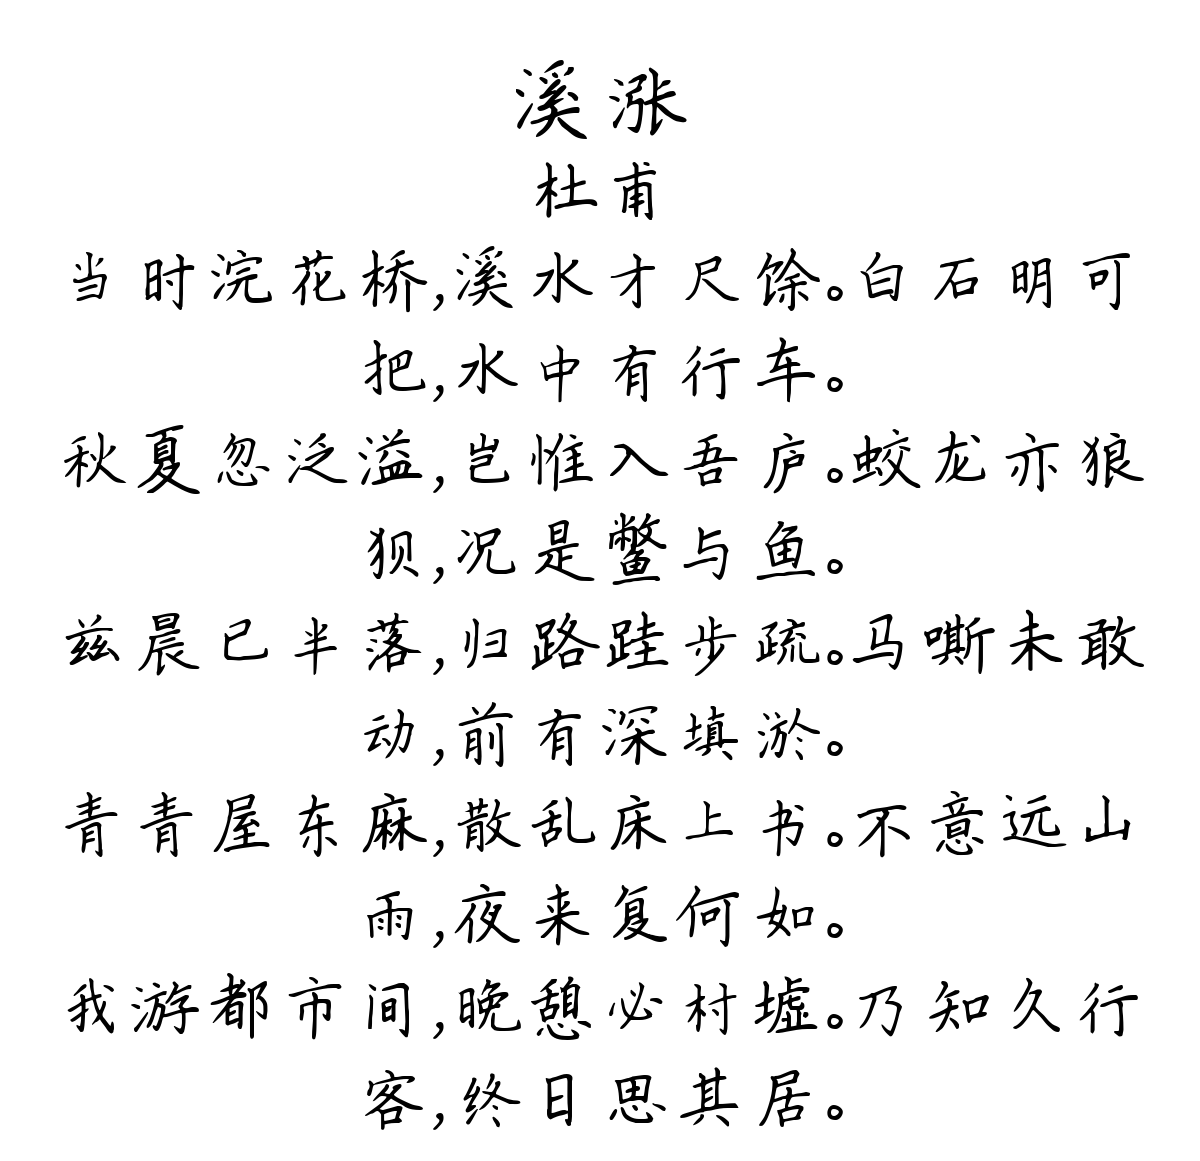 溪涨
杜甫
当时浣花桥,溪水才尺馀。白石明可
把,水中有行车。
秋夏忽泛溢,岂惟入吾庐。蛟龙亦狼
狈,况是鳖与鱼。
兹晨已半落,归路跬步疏。马嘶未敢
动,前有深填淤。
青青屋东麻,散乱床上书。不意远山
雨,夜来复何如。
我游都市间,晚憩必村墟。乃知久行
客,终日思其居。